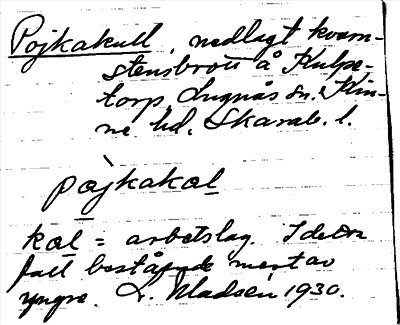 Pojkakull, nedlagt kvarn-
stensbrott å Kulpe-
torp Lugnås sn. Kin-
ne hd. Skarab. l.
påjkakal
kal = arbetslag. I detta
fall bestående mest av
yngre. L. Madsén 1930.